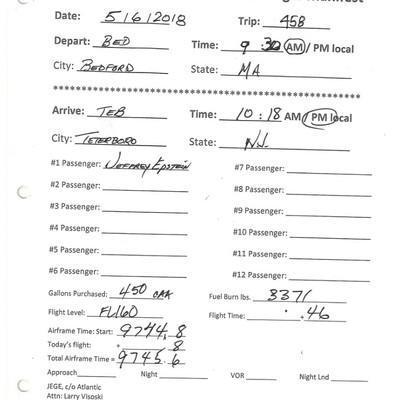 Date: 5/6/2018 Trip: 458
Depart: BED Time: 9:30 AM / PM local
City: BEDFORD State: MA
****************************************
Arrive: TEB Time: 10:18 AM / PM local
City: TETERBORO State: NJ
#1 Passenger: JEFFREY EPSTEIN #7 Passenger:
#2 Passenger: #8 Passenger:
#3 Passenger: #9 Passenger:
#4 Passenger: #10 Passenger:
#5 Passenger: #11 Passenger:
#6 Passenger: #12 Passenger:
Gallons Purchased: 450 CAA Fuel Burn lbs. 3371
Flight Level: FL160 Flight Time: : +46
Airframe Time: Start: 9744.8
Today's flight: + .8
Total Airframe Time = 9745.6
Approach Night VOR Night Lnd
JEGE, c/o Atlantic
Attn: Larry Visoski